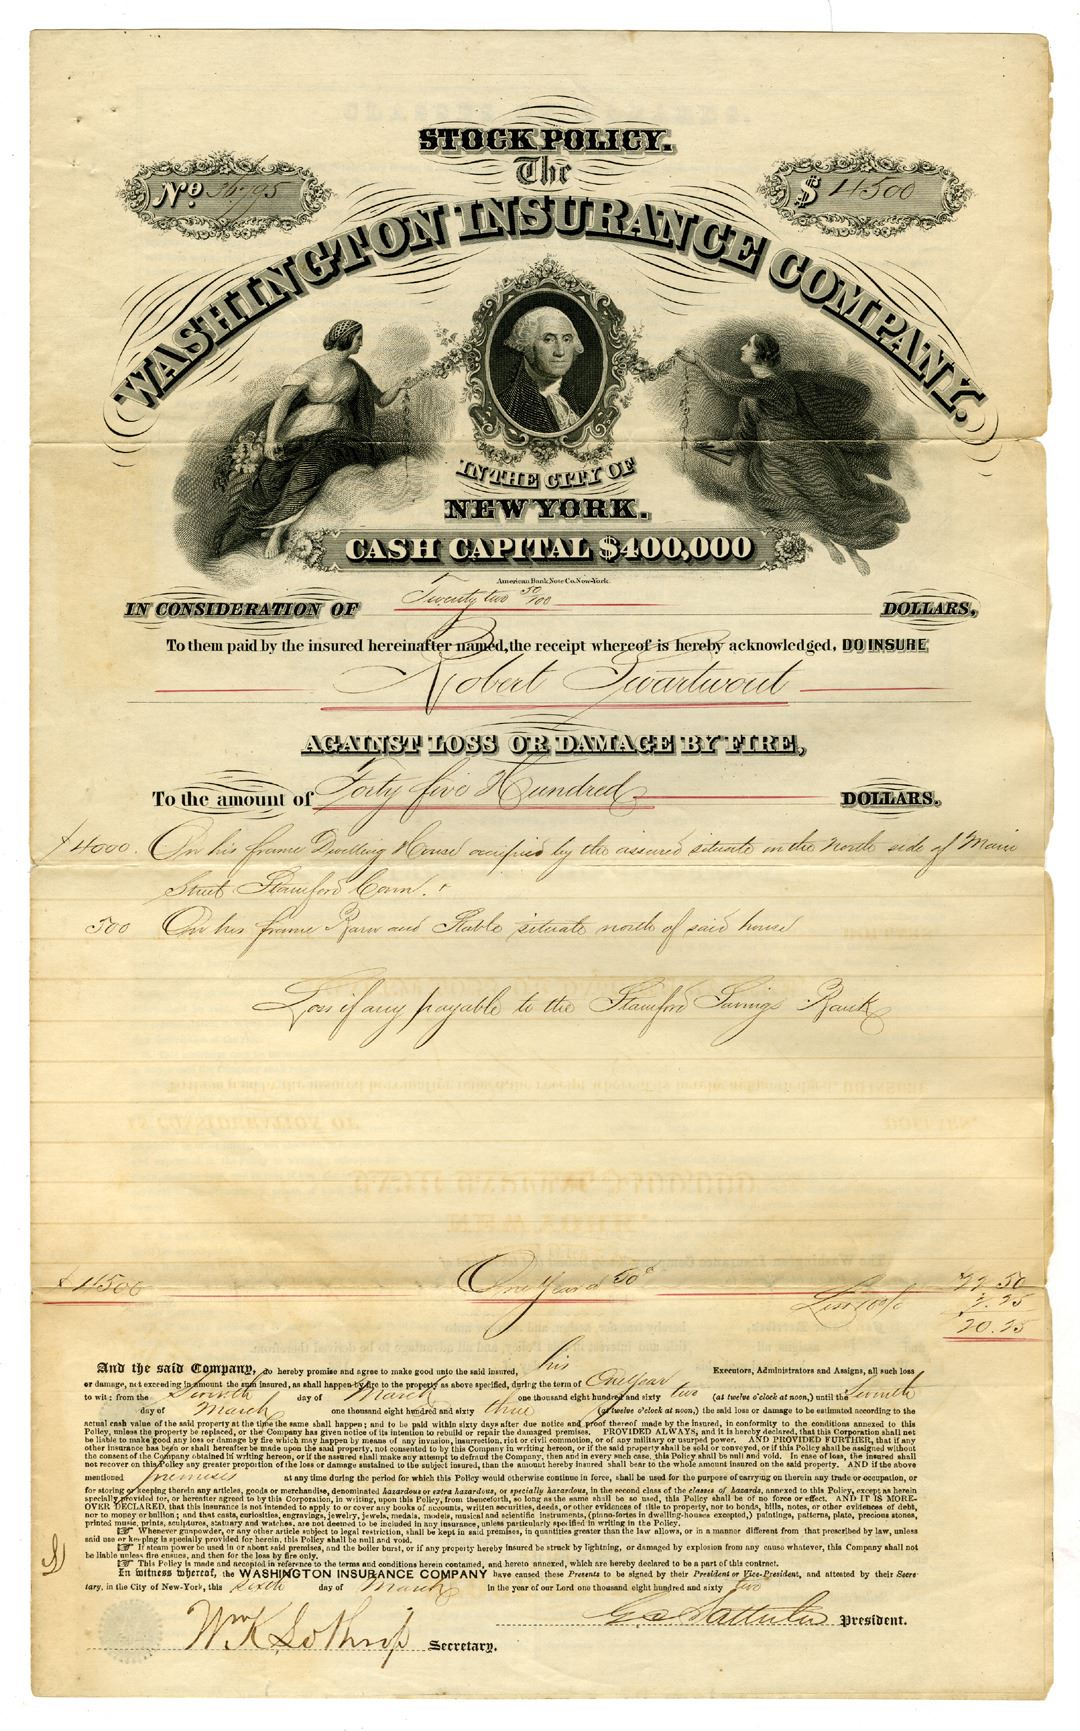 STOCK POLICY.
No.
$ 4500
The
WASHINGTON INSURANCE COMPANY.
IN THE CITY OF
NEW YORK.
CASH CAPITAL $400,000
American Bank Note Co. New-York.
IN CONSIDERATION OF Twenty two 50/100 DOLLARS,
To them paid by the insured hereinafter named, the receipt whereof is hereby acknowledged, DO INSURE
Robert Swartwout
AGAINST LOSS OR DAMAGE BY FIRE,
To the amount of Forty five Hundred DOLLARS.
$4000. On his frame Dwelling House occupied by the assured situate on the North side of Main
Street Stamford Conn. &
500 On his frame Barn and Stable situate north of said house
Loss if any payable to the Stamford Savings Bank
$4500 One Year @ 50c 22.50
Less 10% 2.25
20.25
And the said Company, do hereby promise and agree to make good unto the said insured, his Executors, Administrators and Assigns, all such loss
or damage, not exceeding in amount the sum insured, as shall happen by fire to the property as above specified, during the term of One Year
to wit: from the Seventh day of March one thousand eight hundred and sixty two (at twelve o'clock at noon,) until the Seventh
day of March one thousand eight hundred and sixty three (at twelve o'clock at noon,) the said loss or damage to be estimated according to the
actual cash value of the said property at the time the same shall happen; and to be paid within sixty days after due notice and proof thereof made by the insured, in conformity to the conditions annexed to this
Policy, unless the property be replaced, or the Company has given notice of its intention to rebuild or repair the damaged premises. PROVIDED ALWAYS, and it is hereby declared, that this Corporation shall not
be liable to make good any loss or damage by fire which may happen by means of any invasion, insurrection, riot or civil commotion, or of any military or usurped power. AND PROVIDED FURTHER, that if any
other insurance has been or shall hereafter be made upon the said property, not consented to by this Company in writing hereon, or if the said property shall be sold or conveyed, or if this Policy shall be assigned without
the consent of the Company obtained in writing hereon, or if the assured shall make any attempt to defraud the Company, then and in every such case, this Policy shall be null and void. In case of loss, the insured shall
not recover on this Policy any greater proportion of the loss or damage sustained to the subject insured, than the amount hereby insured shall bear to the whole amount insured on the said property. AND if the above
mentioned premises at any time during the period for which this Policy would otherwise continue in force, shall be used for the purpose of carrying on therein any trade or occupation, or
for storing or keeping therein any articles, goods or merchandise, denominated hazardous or extra hazardous, or specially hazardous, in the second class of the classes of hazards, annexed to this Policy, except as herein
specially provided for, or hereafter agreed to by this Corporation, in writing, upon this Policy, from thenceforth, so long as the same shall be so used, this Policy shall be of no force or effect. AND IT IS MORE-
OVER DECLARED, that this insurance is not intended to apply to or cover any books of accounts, written securities, deeds, or other evidences of title to property, nor to bonds, bills, notes, or other evidences of debt,
nor to money or bullion; and that casts, curiosities, engravings, jewelry, jewels, medals, models, musical and scientific instruments, (piano-fortes in dwelling-houses excepted,) paintings, patterns, plate, precious stones,
printed music, prints, sculptures, statuary and watches, are not deemed to be included in any insurance, unless particularly specified in writing in the Policy.
☞ Whenever gunpowder, or any other article subject to legal restriction, shall be kept in said premises, in quantities greater than the law allows, or in a manner different from that prescribed by law, unless
said use or keeping is specially provided for herein, this Policy shall be null and void.
☞ If steam power be used in or about said premises, and the boiler burst, or if any property hereby insured be struck by lightning, or damaged by explosion from any cause whatever, this Company shall not
be liable unless fire ensues, and then for the loss by fire only.
☞ This Policy is made and accepted in reference to the terms and conditions herein contained, and hereto annexed, which are hereby declared to be a part of this contract.
In witness whereof, the WASHINGTON INSURANCE COMPANY have caused these Presents to be signed by their President or Vice-President, and attested by their Secre-
tary, in the City of New-York, this Sixth day of March in the year of our Lord one thousand eight hundred and sixty two
Geo Satterlee President.
Wm K Lothrop Secretary.